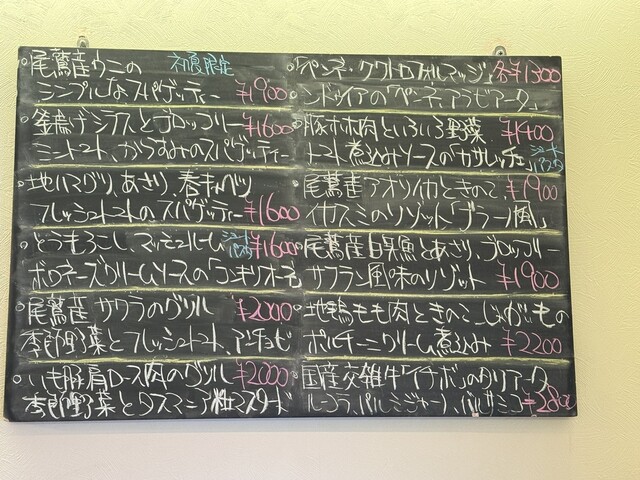 尾鷲産ウニの 初夏限定
シンプルなスパゲッティー ¥1900
釜揚げシラスとブロッコリー ¥1600
ミニトマト、からすみのスパゲッティー
地ハマグリ、あさり、春キャベツ
フレッシュトマトのスパゲッティー ¥1600
とうもろこし、マッシュルーム ショートパスタ ¥1600
ボロネーズクリームソースの「コンキリオーニ」
尾鷲産 サワラのグリル ¥2000
季節野菜とフレッシュトマト、アンチョビ
いも豚肩ロース肉のグリル ¥2000
季節野菜とタスマニア粒マスタード
「ペンネ・クワトロフォルマッジ」各¥1300
ンドゥイアの「ペンネ、アラビアータ」
豚ホホ肉といろいろ野菜 ¥1400
トマト煮込みソースの「カサレッチェ」 ショートパスタ
尾鷲産アオリイカときのこ、¥1900
イカスミのリゾット「ブラーノ風」
尾鷲産白身魚とあさり、ブロッコリー
サフラン風味のリゾット ¥1900
地鶏もも肉ときのこ、じゃがいもの
ポルチーニクリーム煮込み ¥2200
国産交雑牛「イチボ」のタリアータ
ルーコラ、パルミジャーノ、バルサミコ ¥2800